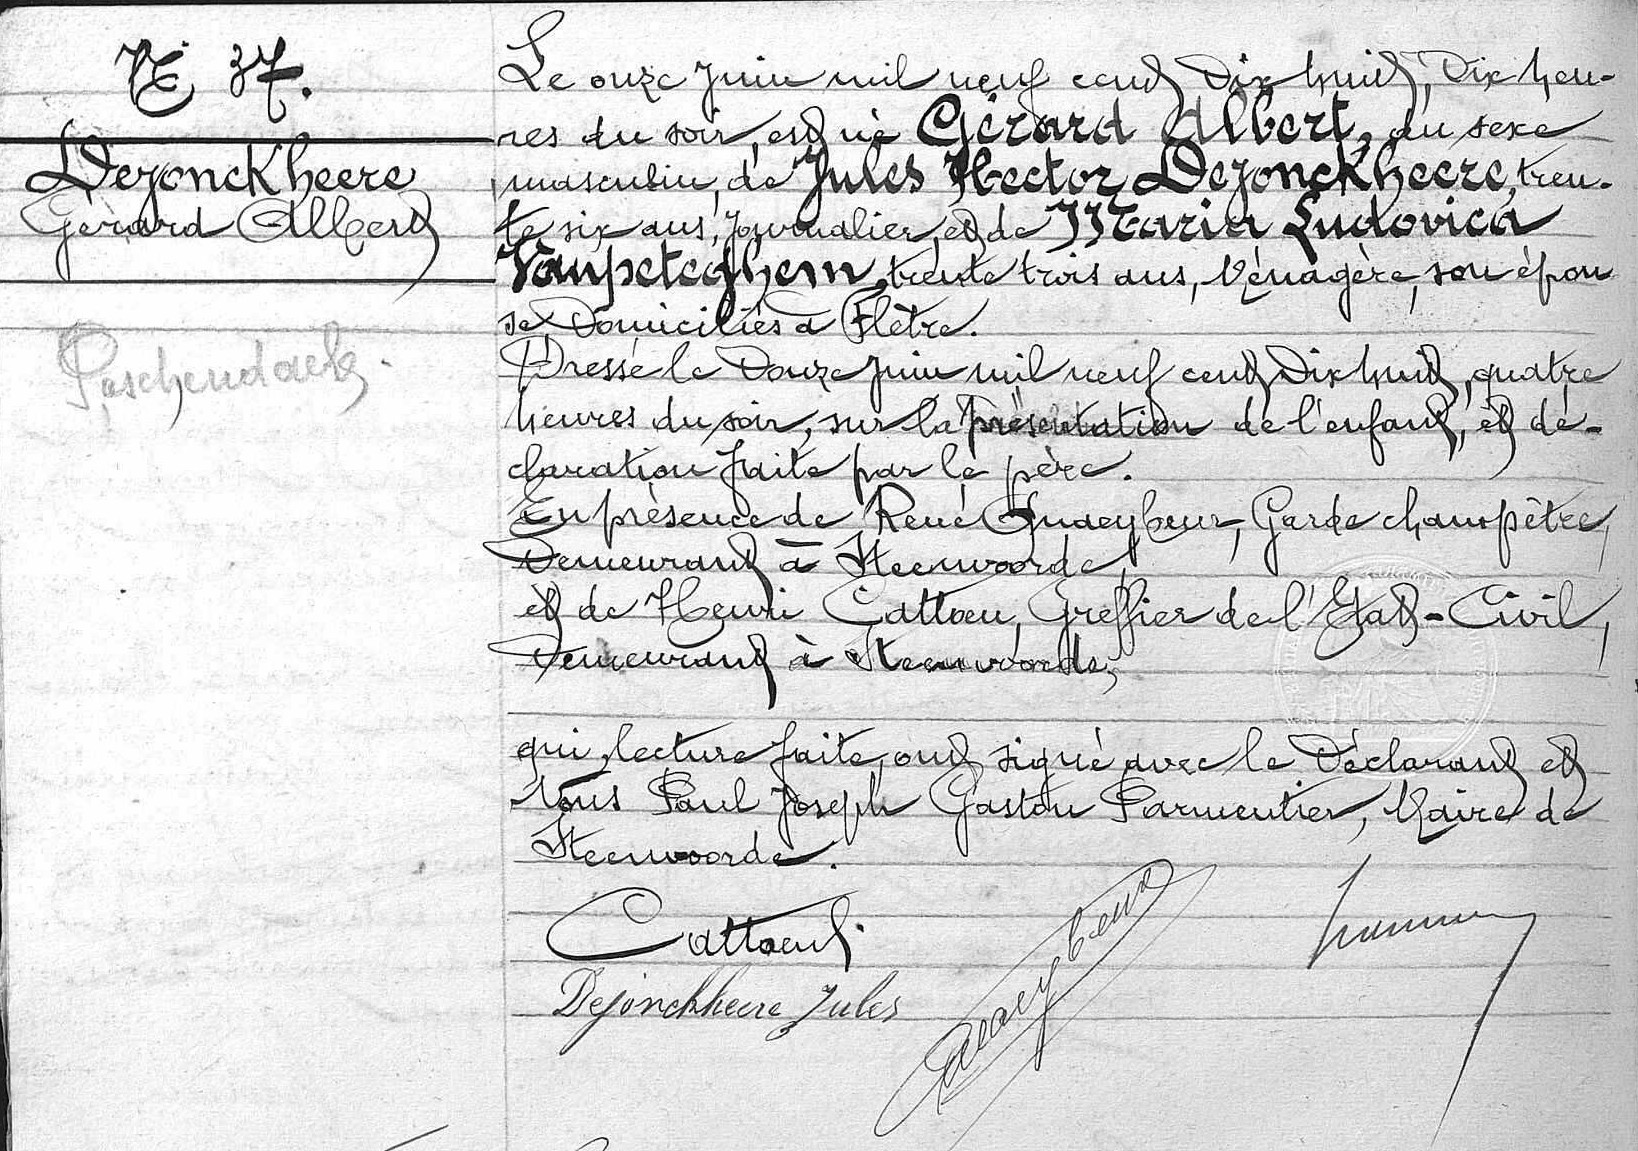 N° 37.
Dejonckheere
Gérard Albert
Paschendaele.
Le onze Juin mil neuf cent Dix huit, Dix heu-
res du soir, est né Gérard Albert, du sexe
masculin, de Jules Hector Dejonckheere, tren-
te six ans, Journalier, et de Maria Ludovica
Vanpeteghem, trente trois ans, Ménagère, son épou
se Domiciliés à Flêtre.
Dressé le Douze Juin mil neuf cent Dix huit, quatre
heures du soir, sur la présentation de l'enfant, et dé-
claration faite par le père.
En présence de René Garde champêtre,
Demeurant à Steenvoorde,
et de Henri Cattoen, Greffier de l'Etat-Civil,
Demeurant à Steenvoorde,
qui, lecture faite, ont signé avec le Déclarant et
Nous Paul Joseph Gaston Parmentier, Maire de
Steenvoorde.
Cattoen h.
Dejonckheere Jules